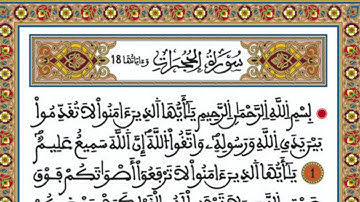 سُورَةُ الحُجُرَاتِ وَءَايَاتُهَا 18
بِسْمِ اِللَّهِ اِلرَّحْمَٰنِ اِلرَّحِيمِ يَٰٓأَيُّهَا اَلذِينَ ءَامَنُواْ لَا تُقَدِّمُواْ
بَيْنَ يَدَيِ اِللَّهِ وَرَسُولِهِۦ وَاتَّقُواْ اُللَّهَ إِنَّ اَللَّهَ سَمِيعٌ عَلِيمٌ
1 يَٰٓأَيُّهَا اَلذِينَ ءَامَنُواْ لَا تَرْفَعُوٓاْ أَصْوَٰتَكُمْ فَوْقَ